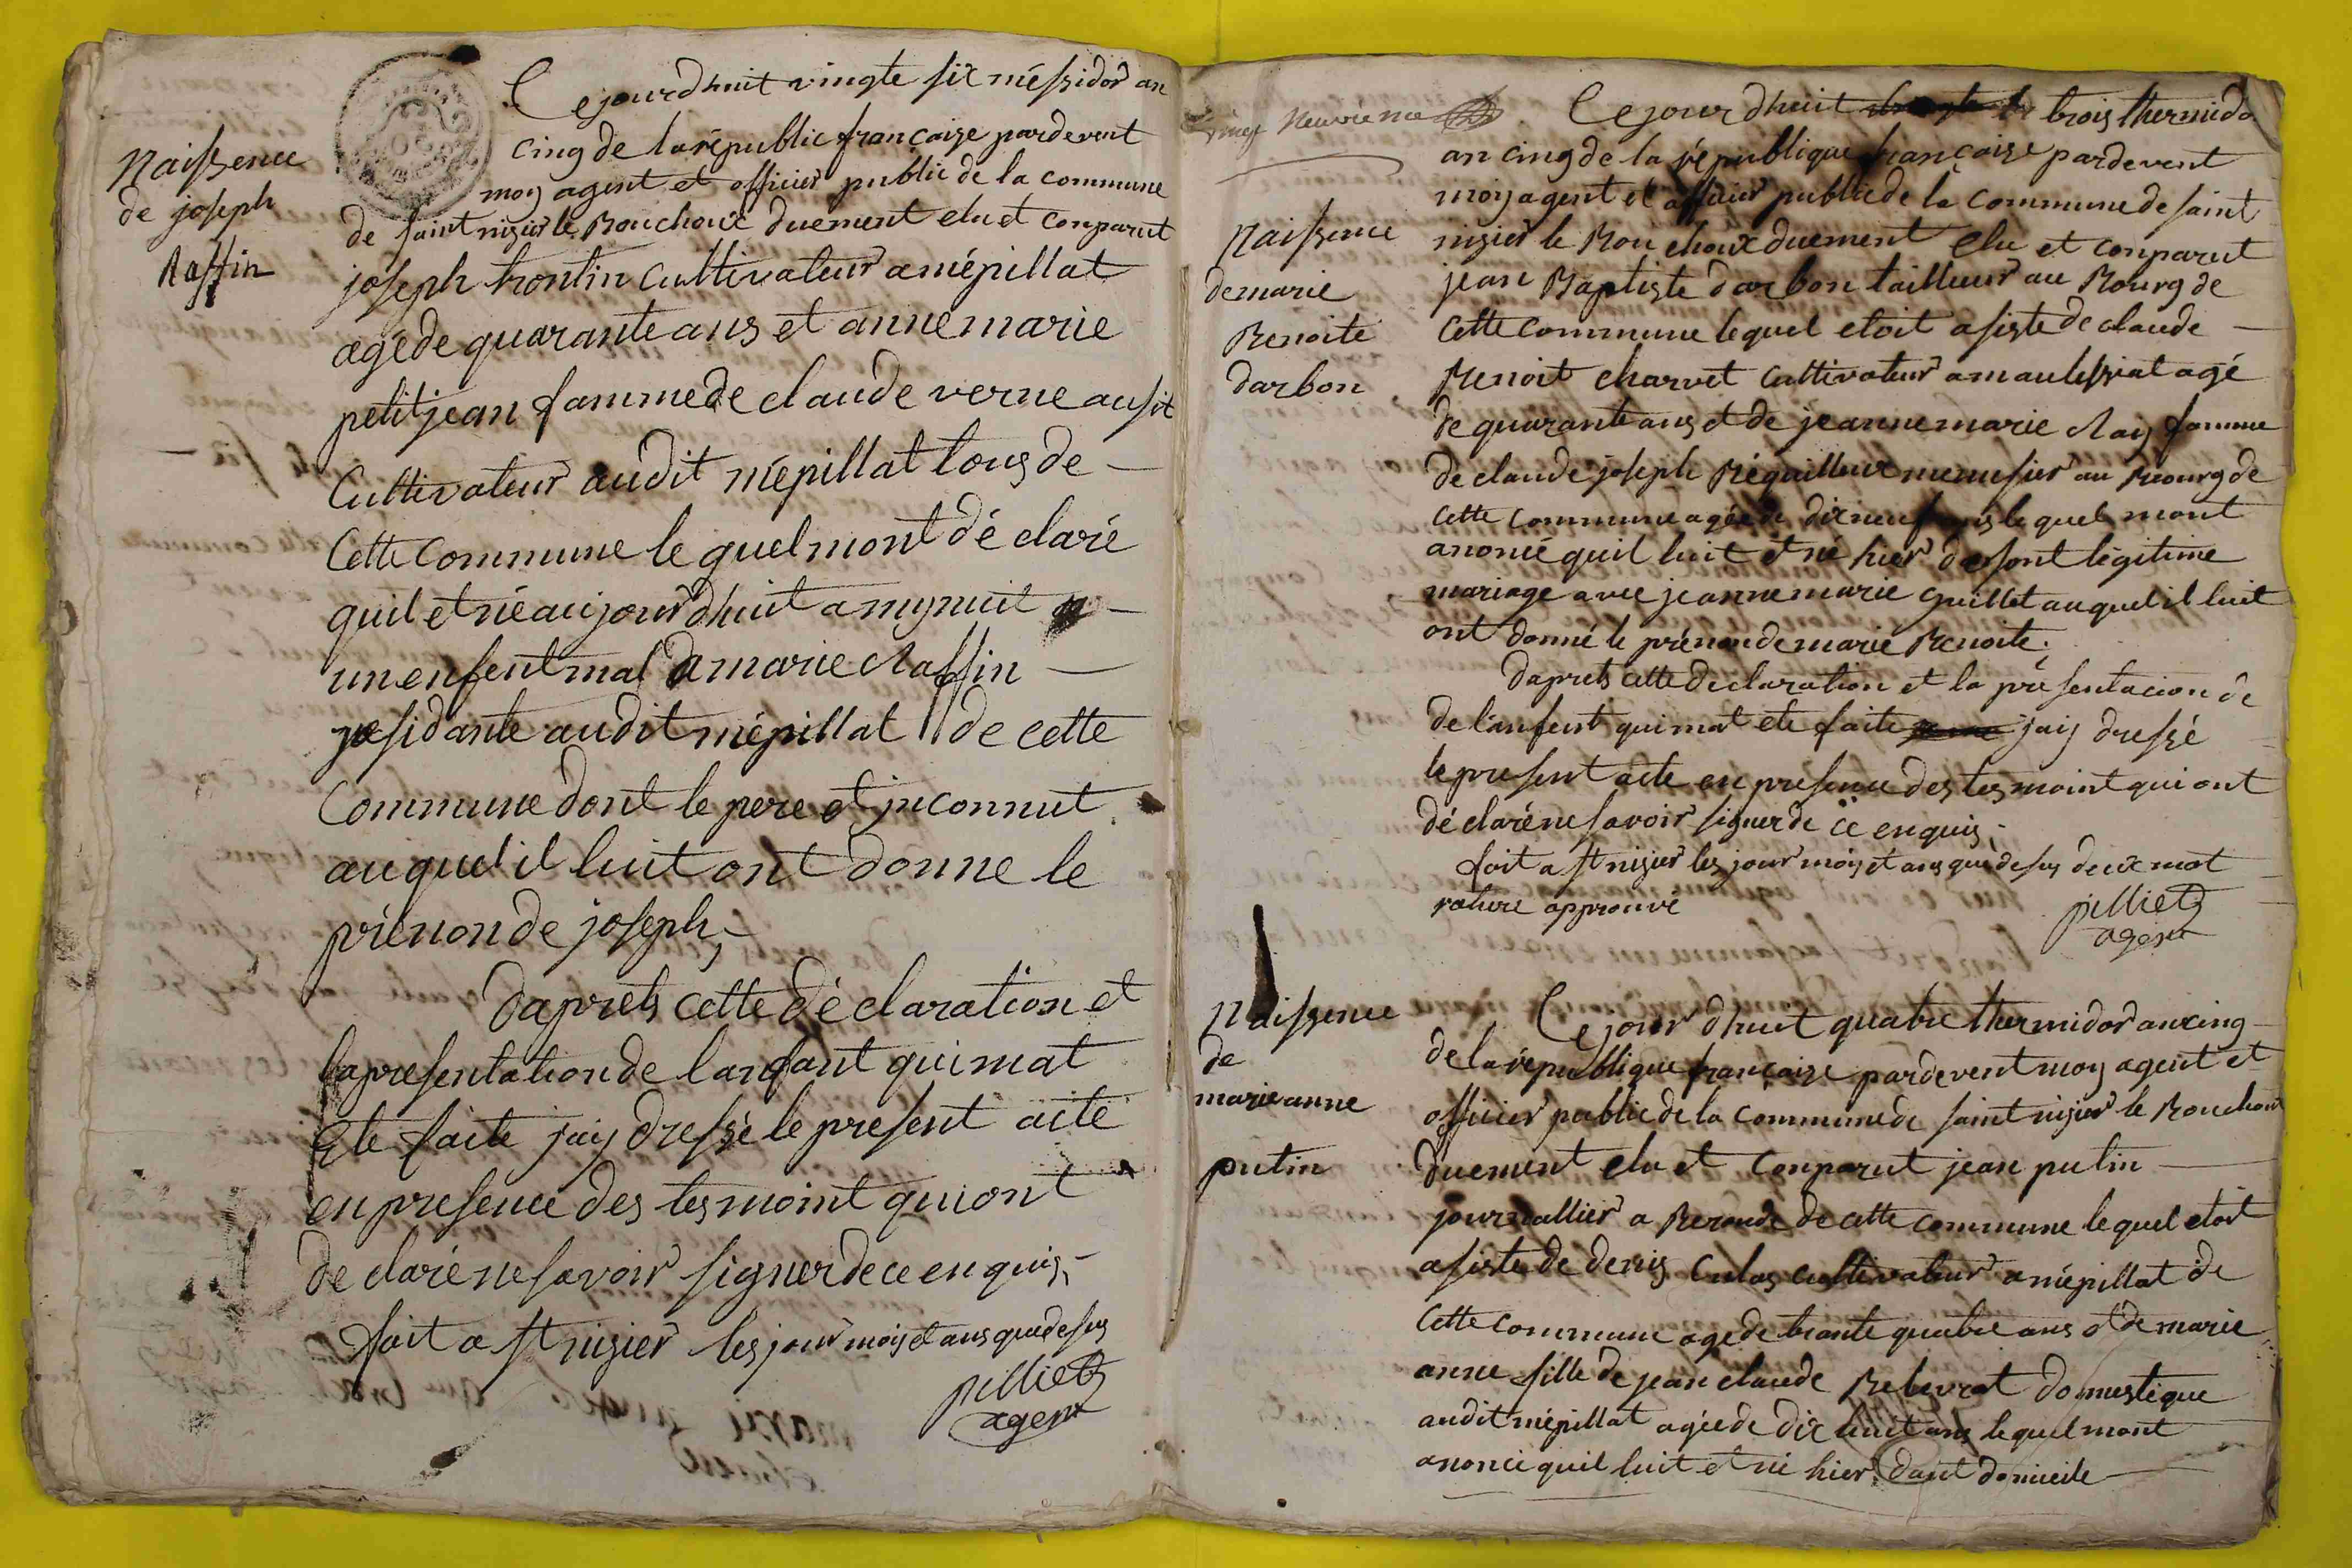 Naissence
de joseph
Raffin
Ce jourdhuit vingte six méssidor an
cinq de la républic françaize pardevent
moy agent et officier public de la commune
de saint nizier le Bouchoux duement elu et conparut
joseph trontin cultivateur a mépillat
agé de quarante ans et anne marie
petitjean famme de claude verne ausit
Cultivateur audit mépillat tous de
Cette commune lequel mont déclaré
quil et né aujourdhuit a mynuit
un enfent mal a marie Raffin
residante audit mépillat de cette
commune dont le pere et inconnut
auquel il luit ont donne le
prénon de joseph,
Daprets cette déclaration et
la presentation de lanfant qui mat
ete faite jaiy dressé le present acte
en presence des tesmoint qui ont
declaré ne savoir signer de ce enquis,
fait a st nizier les jour mois et ans que desus
pilliet
agent
vingt neuvieme
Naissence
de marie
Benoite
darbon
Ce jour dhuit trois thermido
an cinq de la républlique françaize pardevent
moiy agent et officier public de la commune de saint
nizier le Bouchoux duement elu et conparut
jean Baptiste darbon tailleur au Bourg de
cette commune lequel etoit asiste de claude
Benoit charvet cultivateur a maulissiat agé
de quarante ans et de jeanne marie Ray famme
de claude joseph Réquilleux menusier au Bourg de
cette commune agée de dix neuf ans lequel mont
anoncé quil luit et né hier de sont légitime
mariage avec jeanne marie Guillet auquel il luit
ont donné le prénon de marie Benoite.
Daprets cette declaration et la présentacion de
de lanfent qui mat ete faite jaiy dressé
le present acte en presence des tesmoint qui ont
déclaré ne savoir signer de ce enquis,
fait a st nizier les jour mois et ans que desus deux mot
rature approuvé
pilliet
agent
Naissence
de
marie anne
putin
Ce jour dhuit quatre thermidor an cinq
de la républlique françaize pardevent moy agent et
officier public de la commune de saint nizier le Bouchoux
duement elu et conparut jean putin
journallier a Beronde de cette commune lequel etoit
asiste de denis Culas cultivateur a mépillat de
Cette commune age de trante quatre ans et de marie
anne fille de jean claude Rebevrat domestique
audit mépillat agée de dix huit ans lequel mont
anoncé quil luit et né hier dant domicile